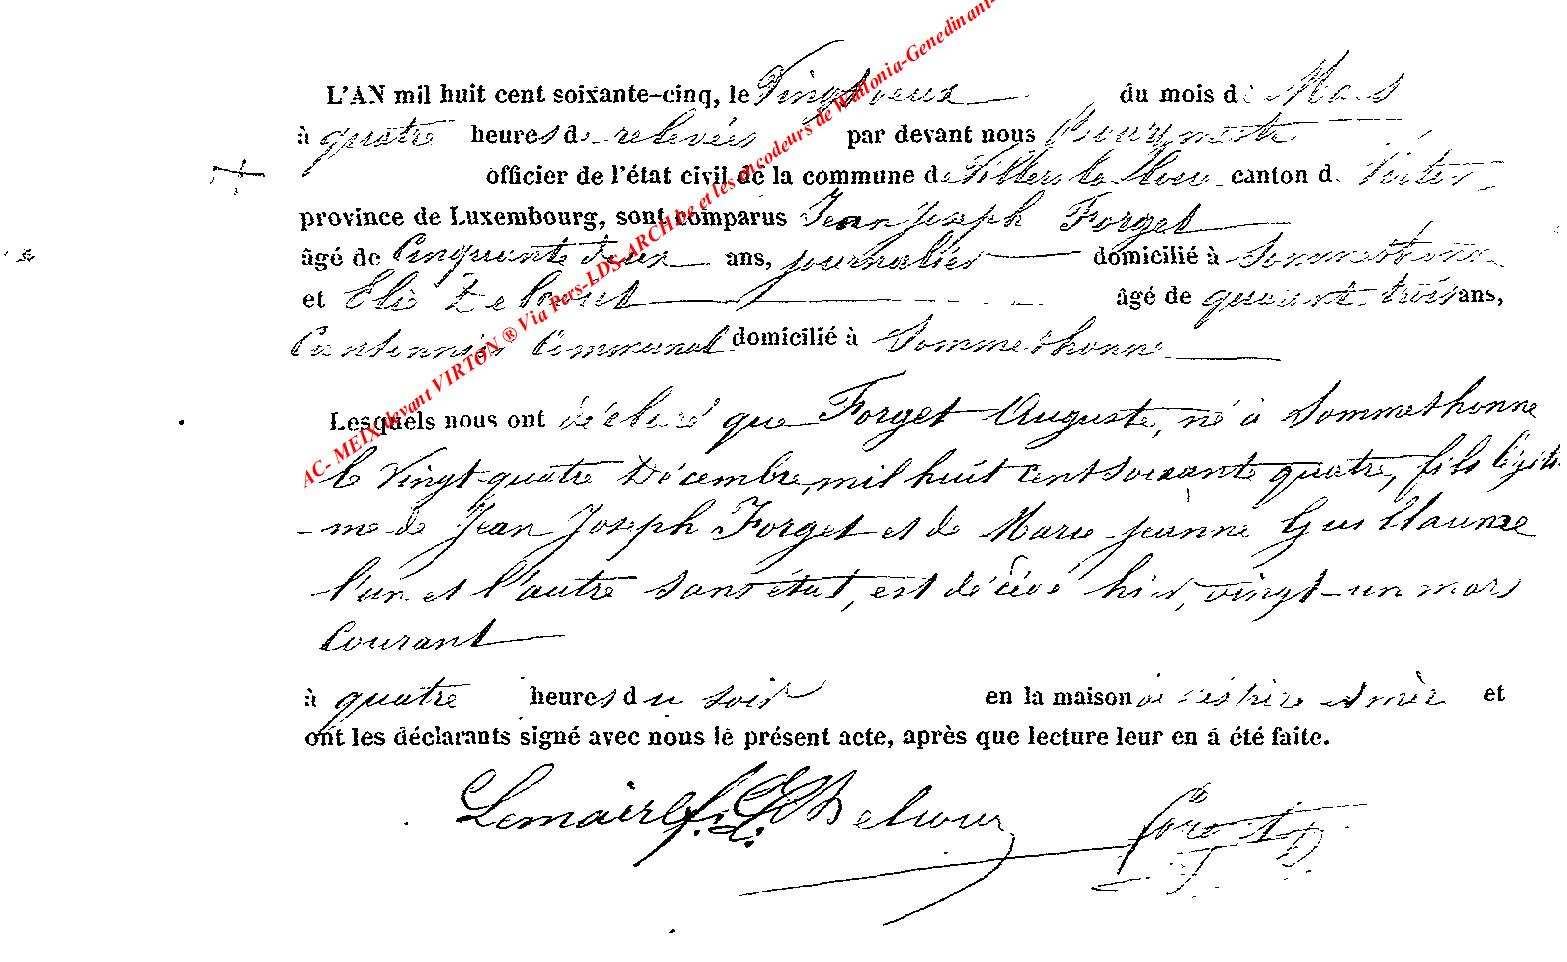 L'AN mil huit cent soixante-cinq, le Vingt deux du mois de Mars
à quatre heures de relevées par devant nous Bourgmestre
officier de l'état civil de la commune de Villers la Loue canton de Virton
province de Luxembourg, sont comparus Jean Joseph Forget
âgé de Cinquante deux ans, journalier domicilié à Sommethonne
et Elie âgé de quarante trois ans,
Cantonnier Communal domicilié à Sommethonne
Lesquels nous ont déclaré que Forget Auguste, né à Sommethonne
le Vingt-quatre Décembre, mil huit cent soixante quatre, fils légiti
-me de Jean Joseph Forget et de Marie Jeanne Guillaume
l'un et l'autre sans état, est décédé hier, vingt-un mars
Courant
à quatre heures du soir en la maison de ses père et mère et
ont les déclarants signé avec nous le présent acte, après que lecture leur en a été faite.
Lemaire
AC- MEIX devant VIRTON ® Via Pers-LDS-ARCH be et les encodeurs de Wallonia-Genedinant-